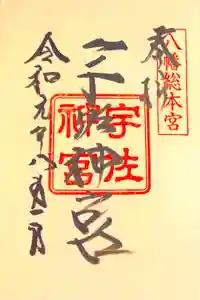 八幡総本宮
奉拝
宇佐神宮
宇佐神宮
令和元年八月